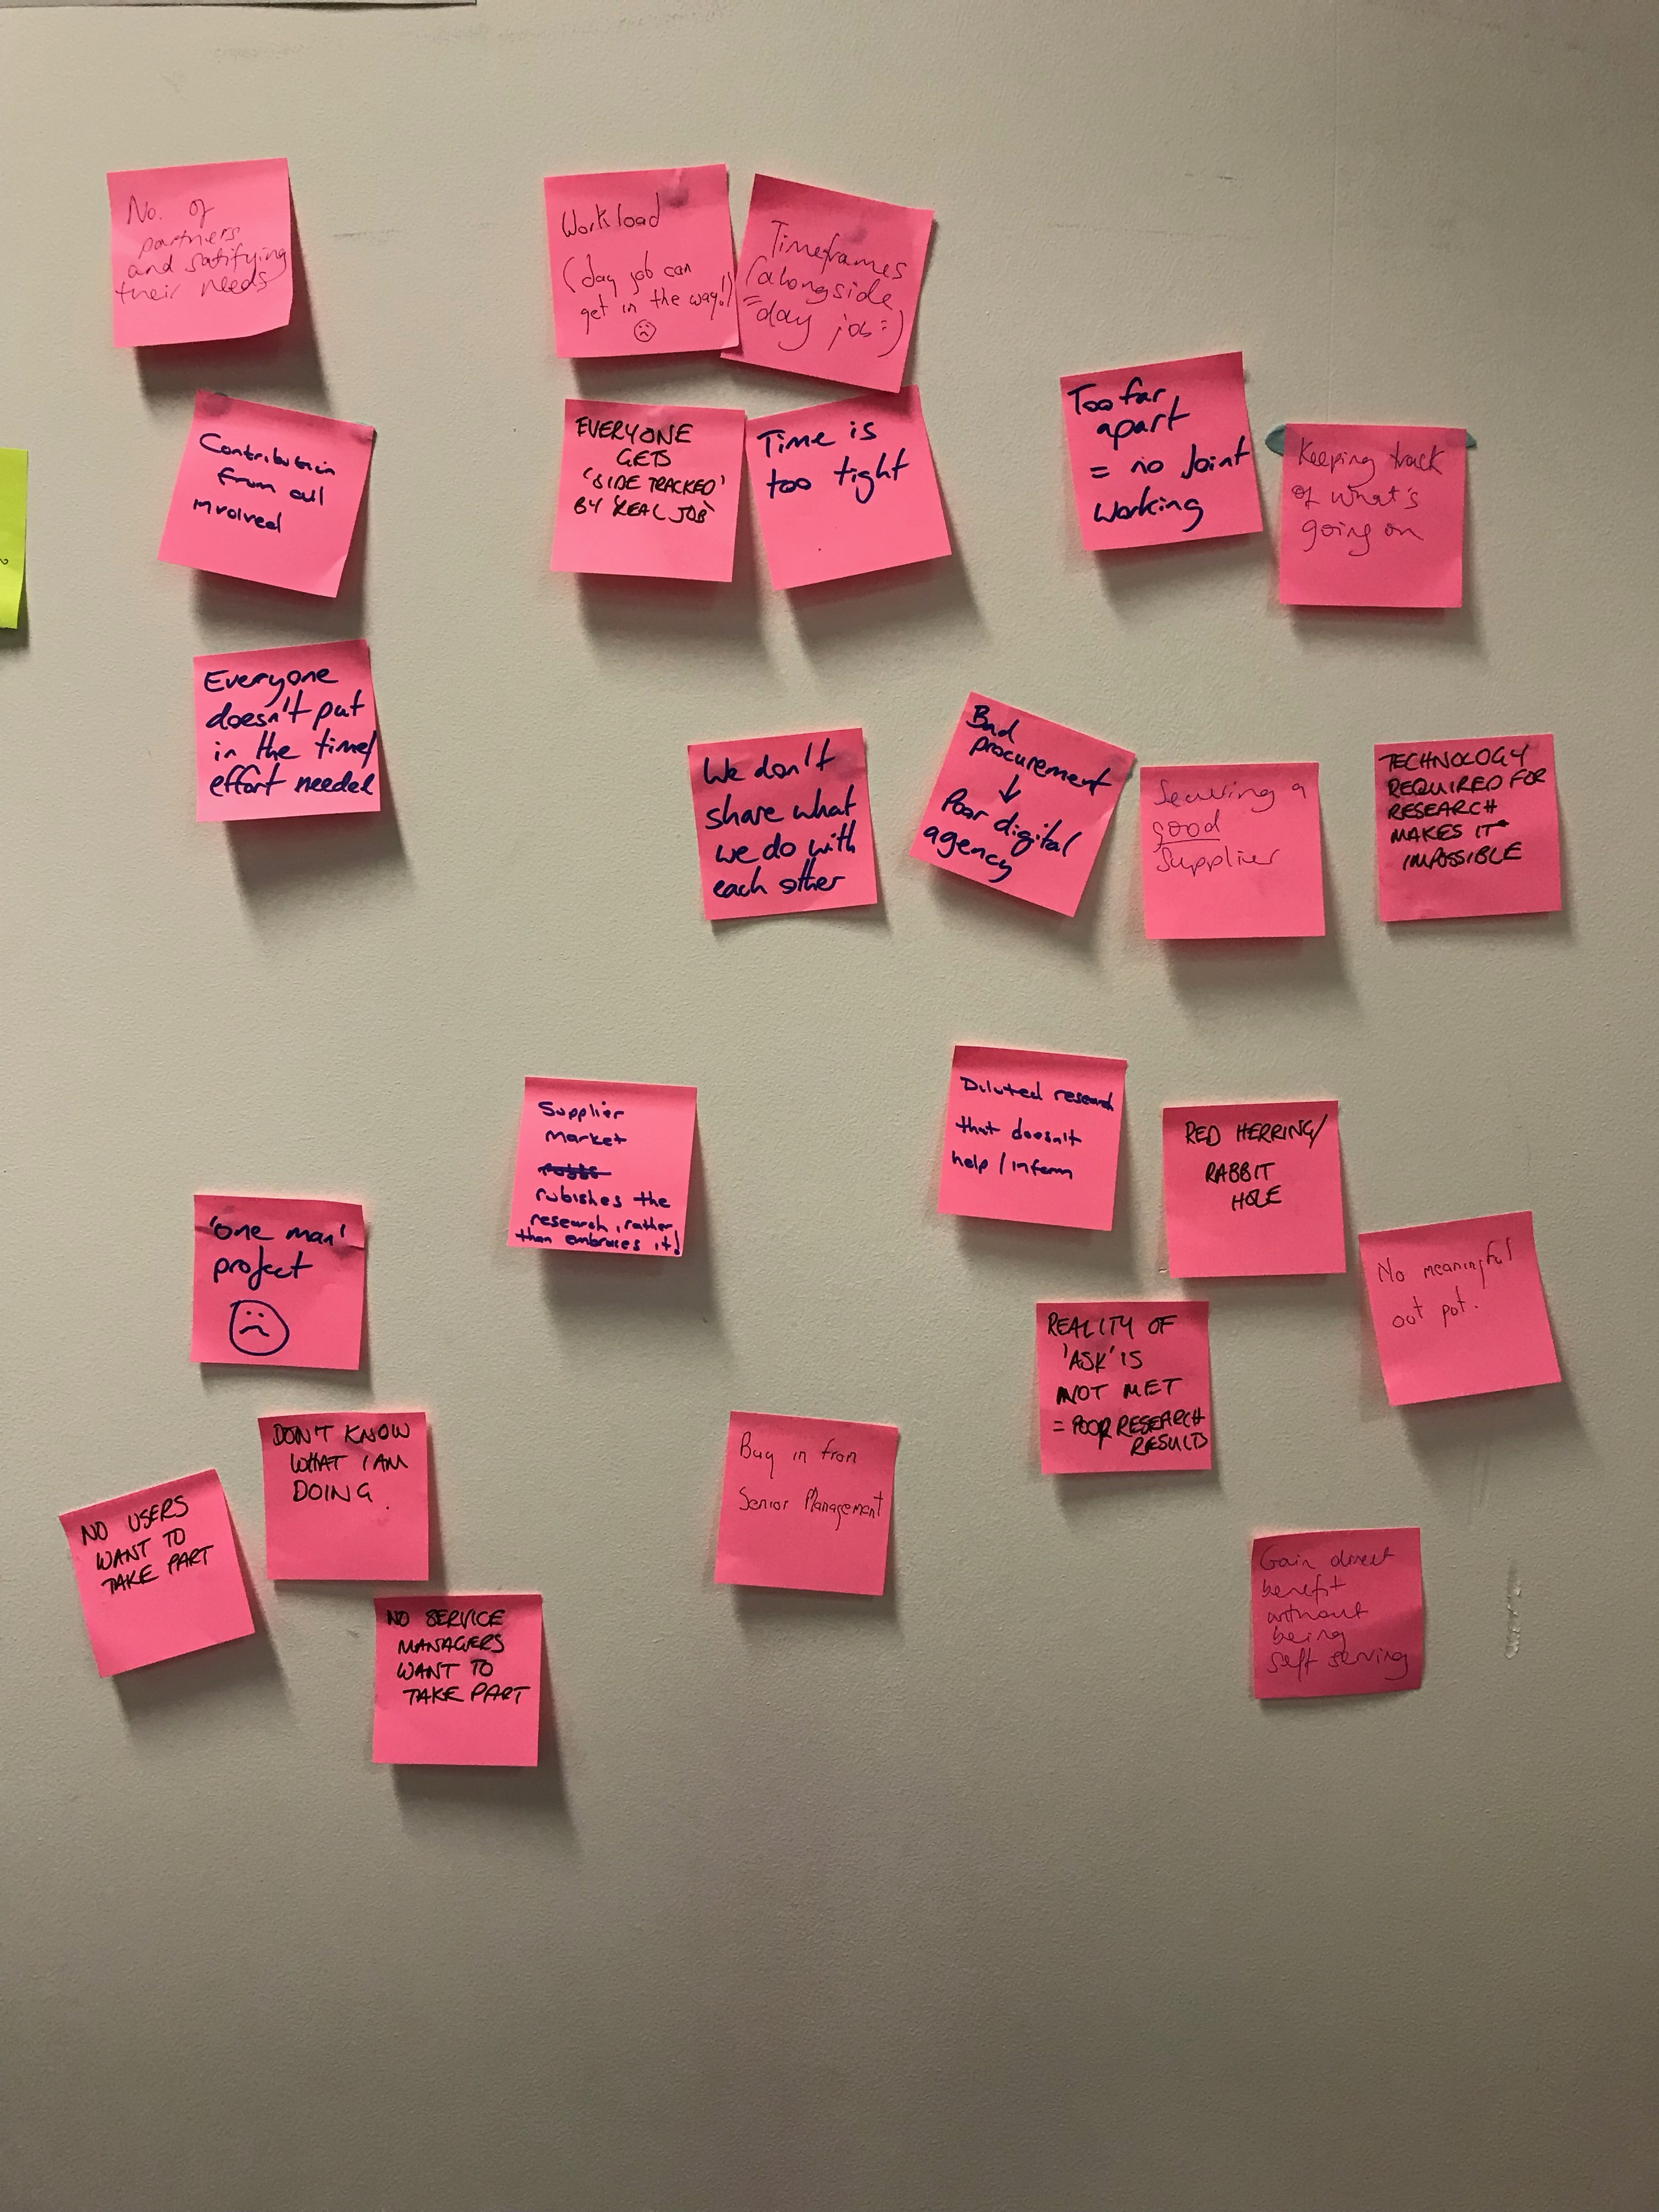 No. of
partners
and satifying
their needs
Workload
(day job can
get in the way!)
Timeframes
(alongside
day job :)
Contribution
from all
involved
EVERYONE
GETS
'SIDE TRACKED'
BY 'REAL JOB'
Time is
too tight
Too far
apart
= no Joint
working
Keeping track
of what's
going on
Everyone
doesn't put
in the time/
effort needed
We don't
share what
we do with
each other
Bad
procurement
↓
Poor digital
agency
Securing a
good
supplier
TECHNOLOGY
REQUIRED FOR
RESEARCH
MAKES IT
IMPOSSIBLE
Supplier
Market
rubishes the
research, rather
than embraces it!
Diluted research
that doesn't
help / inform
RED HERRING/
RABBIT
HOLE
'One man'
project
No meaningful
out put.
REALITY OF
'ASK' IS
NOT MET
= POOR RESEARCH
RESULTS
DON'T KNOW
WHAT I AM
DOING.
Buy in from
Senior Management
NO USERS
WANT TO
TAKE PART
NO SERVICE
MANAGERS
WANT TO
TAKE PART
Gain direct
benefit
without
being
self serving